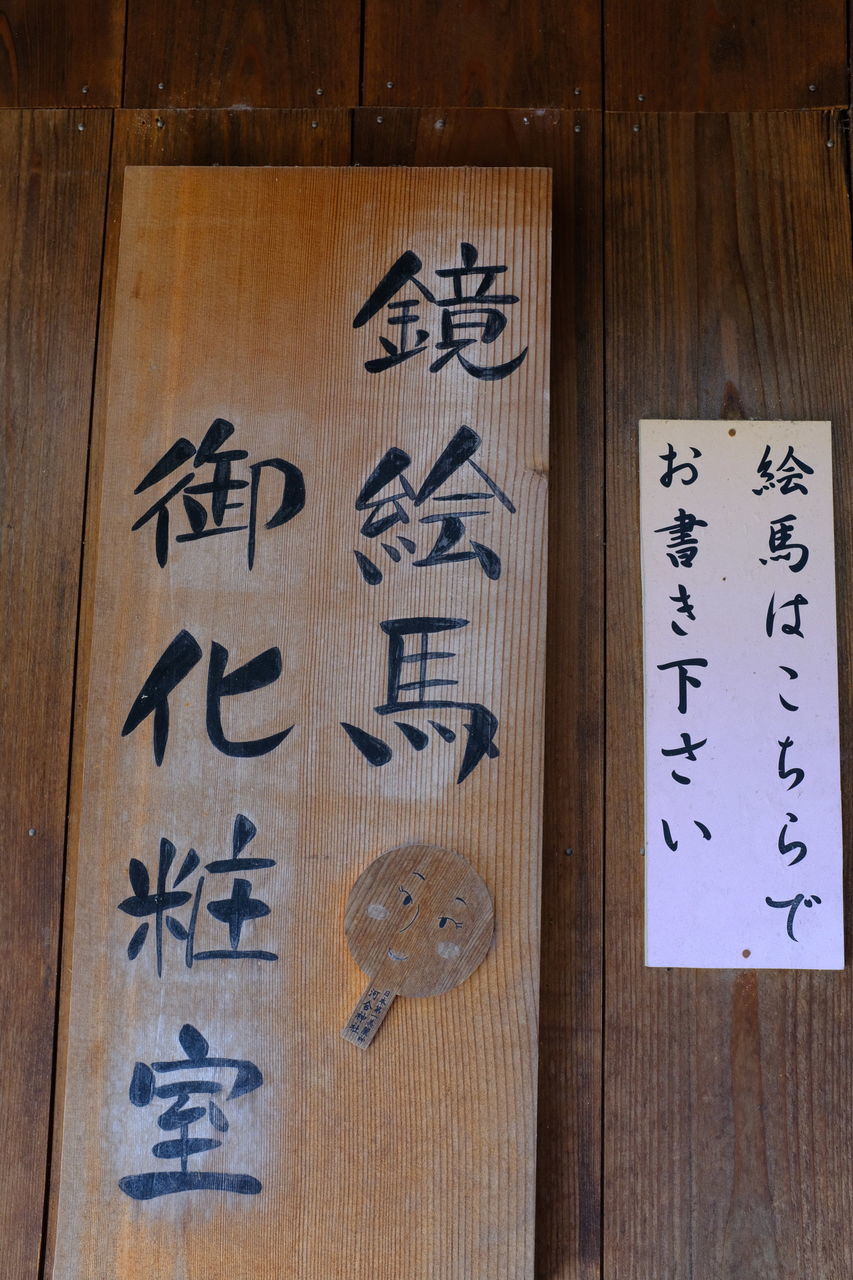 鏡絵馬
御化粧室
絵馬はこちらで
お書き下さい
日本第一美麗神
河合神社